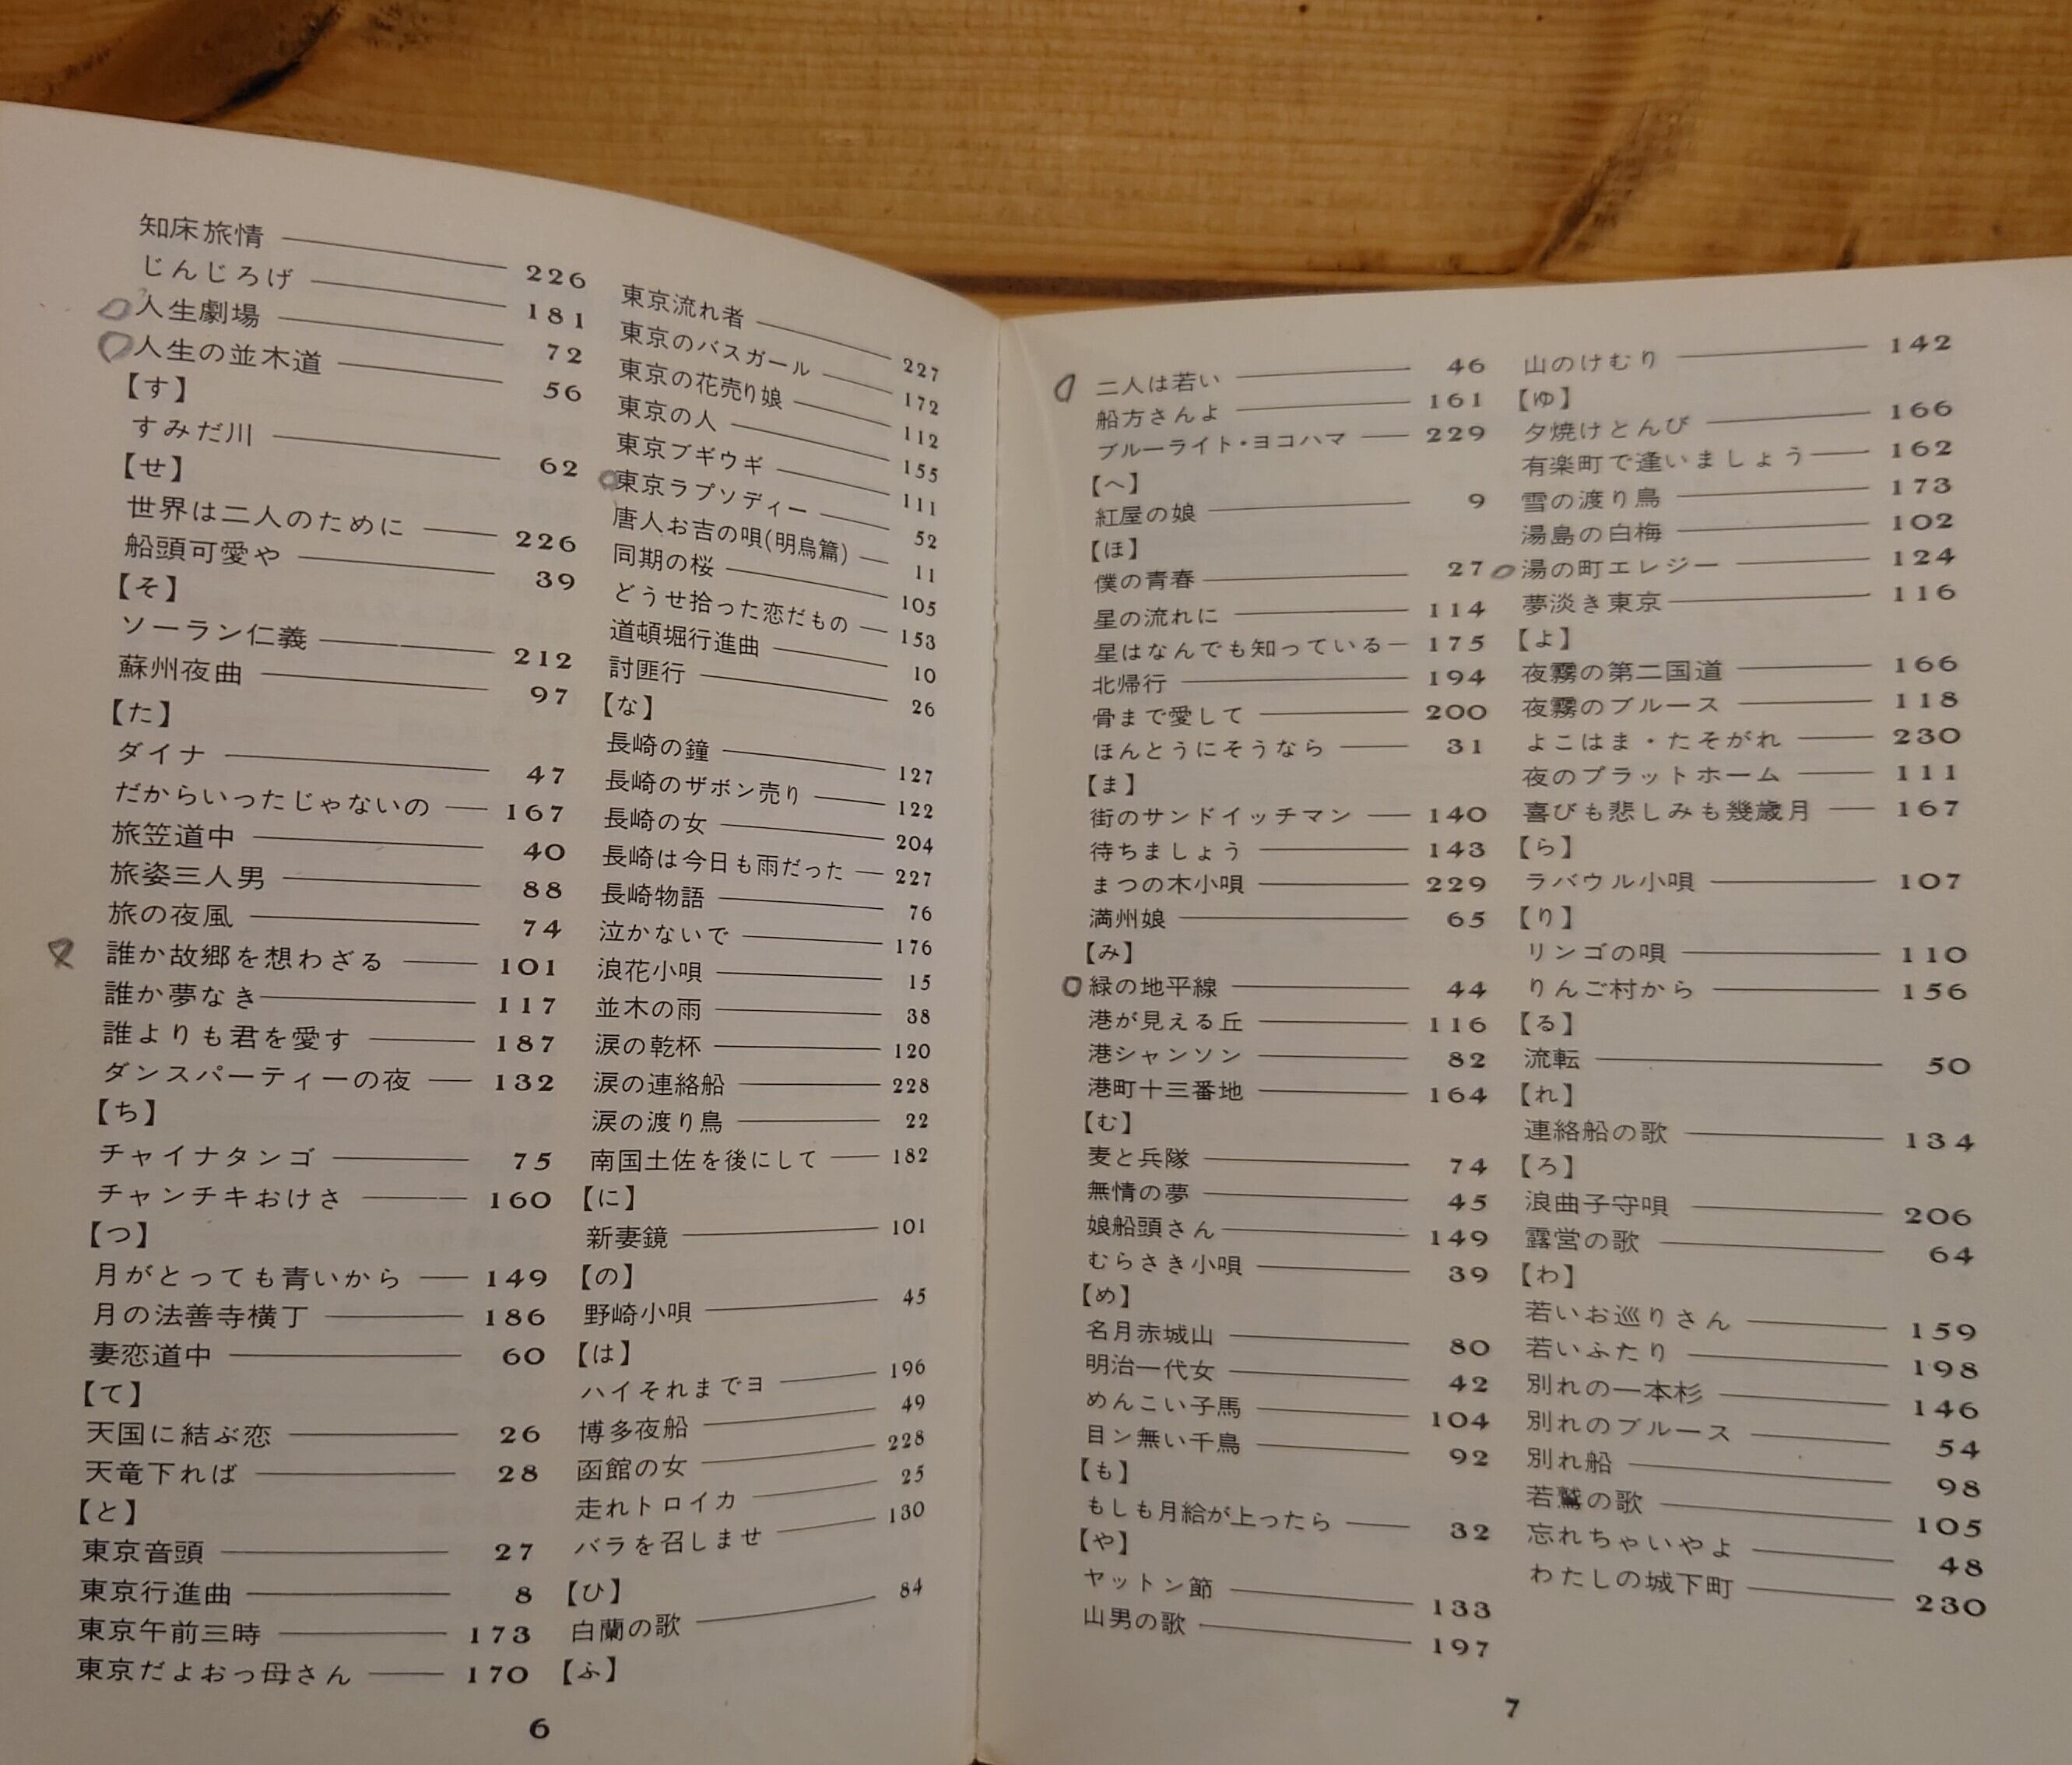 知床旅情 226
じんじろげ 181
人生劇場 72
人生の並木道 56
【す】
すみだ川 62
【せ】
世界は二人のために 226
船頭可愛や 39
【そ】
ソーラン仁義 212
蘇州夜曲 97
【た】
ダイナ 47
だからいったじゃないの 167
旅笠道中 40
旅姿三人男 88
旅の夜風 74
誰か故郷を想わざる 101
誰か夢なき 117
誰よりも君を愛す 187
ダンスパーティーの夜 132
【ち】
チャイナタンゴ 75
チャンチキおけさ 160
【つ】
月がとっても青いから 149
月の法善寺横丁 186
妻恋道中 60
【て】
天国に結ぶ恋 26
天竜下れば 28
【と】
東京音頭 27
東京行進曲 8
東京午前三時 173
東京だよおっ母さん 170
東京流れ者 227
東京のバスガール 172
東京の花売り娘 112
東京の人 155
東京ブギウギ 111
東京ラプソディー 52
唐人お吉の唄(明烏篇) 11
同期の桜 105
どうせ拾った恋だもの 153
道頓堀行進曲 10
討匪行 26
【な】
長崎の鐘 127
長崎のザボン売り 122
長崎の女 204
長崎は今日も雨だった 227
長崎物語 76
泣かないで 176
浪花小唄 15
並木の雨 38
涙の乾杯 120
涙の連絡船 228
涙の渡り鳥 22
南国土佐を後にして 182
【に】
新妻鏡 101
【の】
野崎小唄 45
【は】
ハイそれまでヨ 196
博多夜船 49
函館の女 228
走れトロイカ 25
バラを召しませ 130
【ひ】
白蘭の歌 84
【ふ】
6
二人は若い 46
船方さんよ 161
ブルーライト・ヨコハマ 229
【へ】
紅屋の娘 9
【ほ】
僕の青春 27
星の流れに 114
星はなんでも知っている 175
北帰行 194
骨まで愛して 200
ほんとうにそうなら 31
【ま】
街のサンドイッチマン 140
待ちましょう 143
まつの木小唄 229
満州娘 65
【み】
緑の地平線 44
港が見える丘 116
港シャンソン 82
港町十三番地 164
【む】
麦と兵隊 74
無情の夢 45
娘船頭さん 149
むらさき小唄 39
【め】
名月赤城山 80
明治一代女 42
めんこい子馬 104
目ン無い千鳥 92
【も】
もしも月給が上ったら 32
【や】
ヤットン節 133
山男の歌 197
山のけむり 142
【ゆ】
夕焼けとんび 166
有楽町で逢いましょう 162
雪の渡り鳥 173
湯島の白梅 102
湯の町エレジー 124
夢淡き東京 116
【よ】
夜霧の第二国道 166
夜霧のブルース 118
よこはま・たそがれ 230
夜のプラットホーム 111
喜びも悲しみも幾歳月 167
【ら】
ラバウル小唄 107
【り】
リンゴの唄 110
りんご村から 156
【る】
流転 50
【れ】
連絡船の歌 134
【ろ】
浪曲子守唄 206
露営の歌 64
【わ】
若いお巡りさん 159
若いふたり 198
別れの一本杉 146
別れのブルース 54
別れ船 98
若鷲の歌 105
忘れちゃいやよ 48
わたしの城下町 230
7